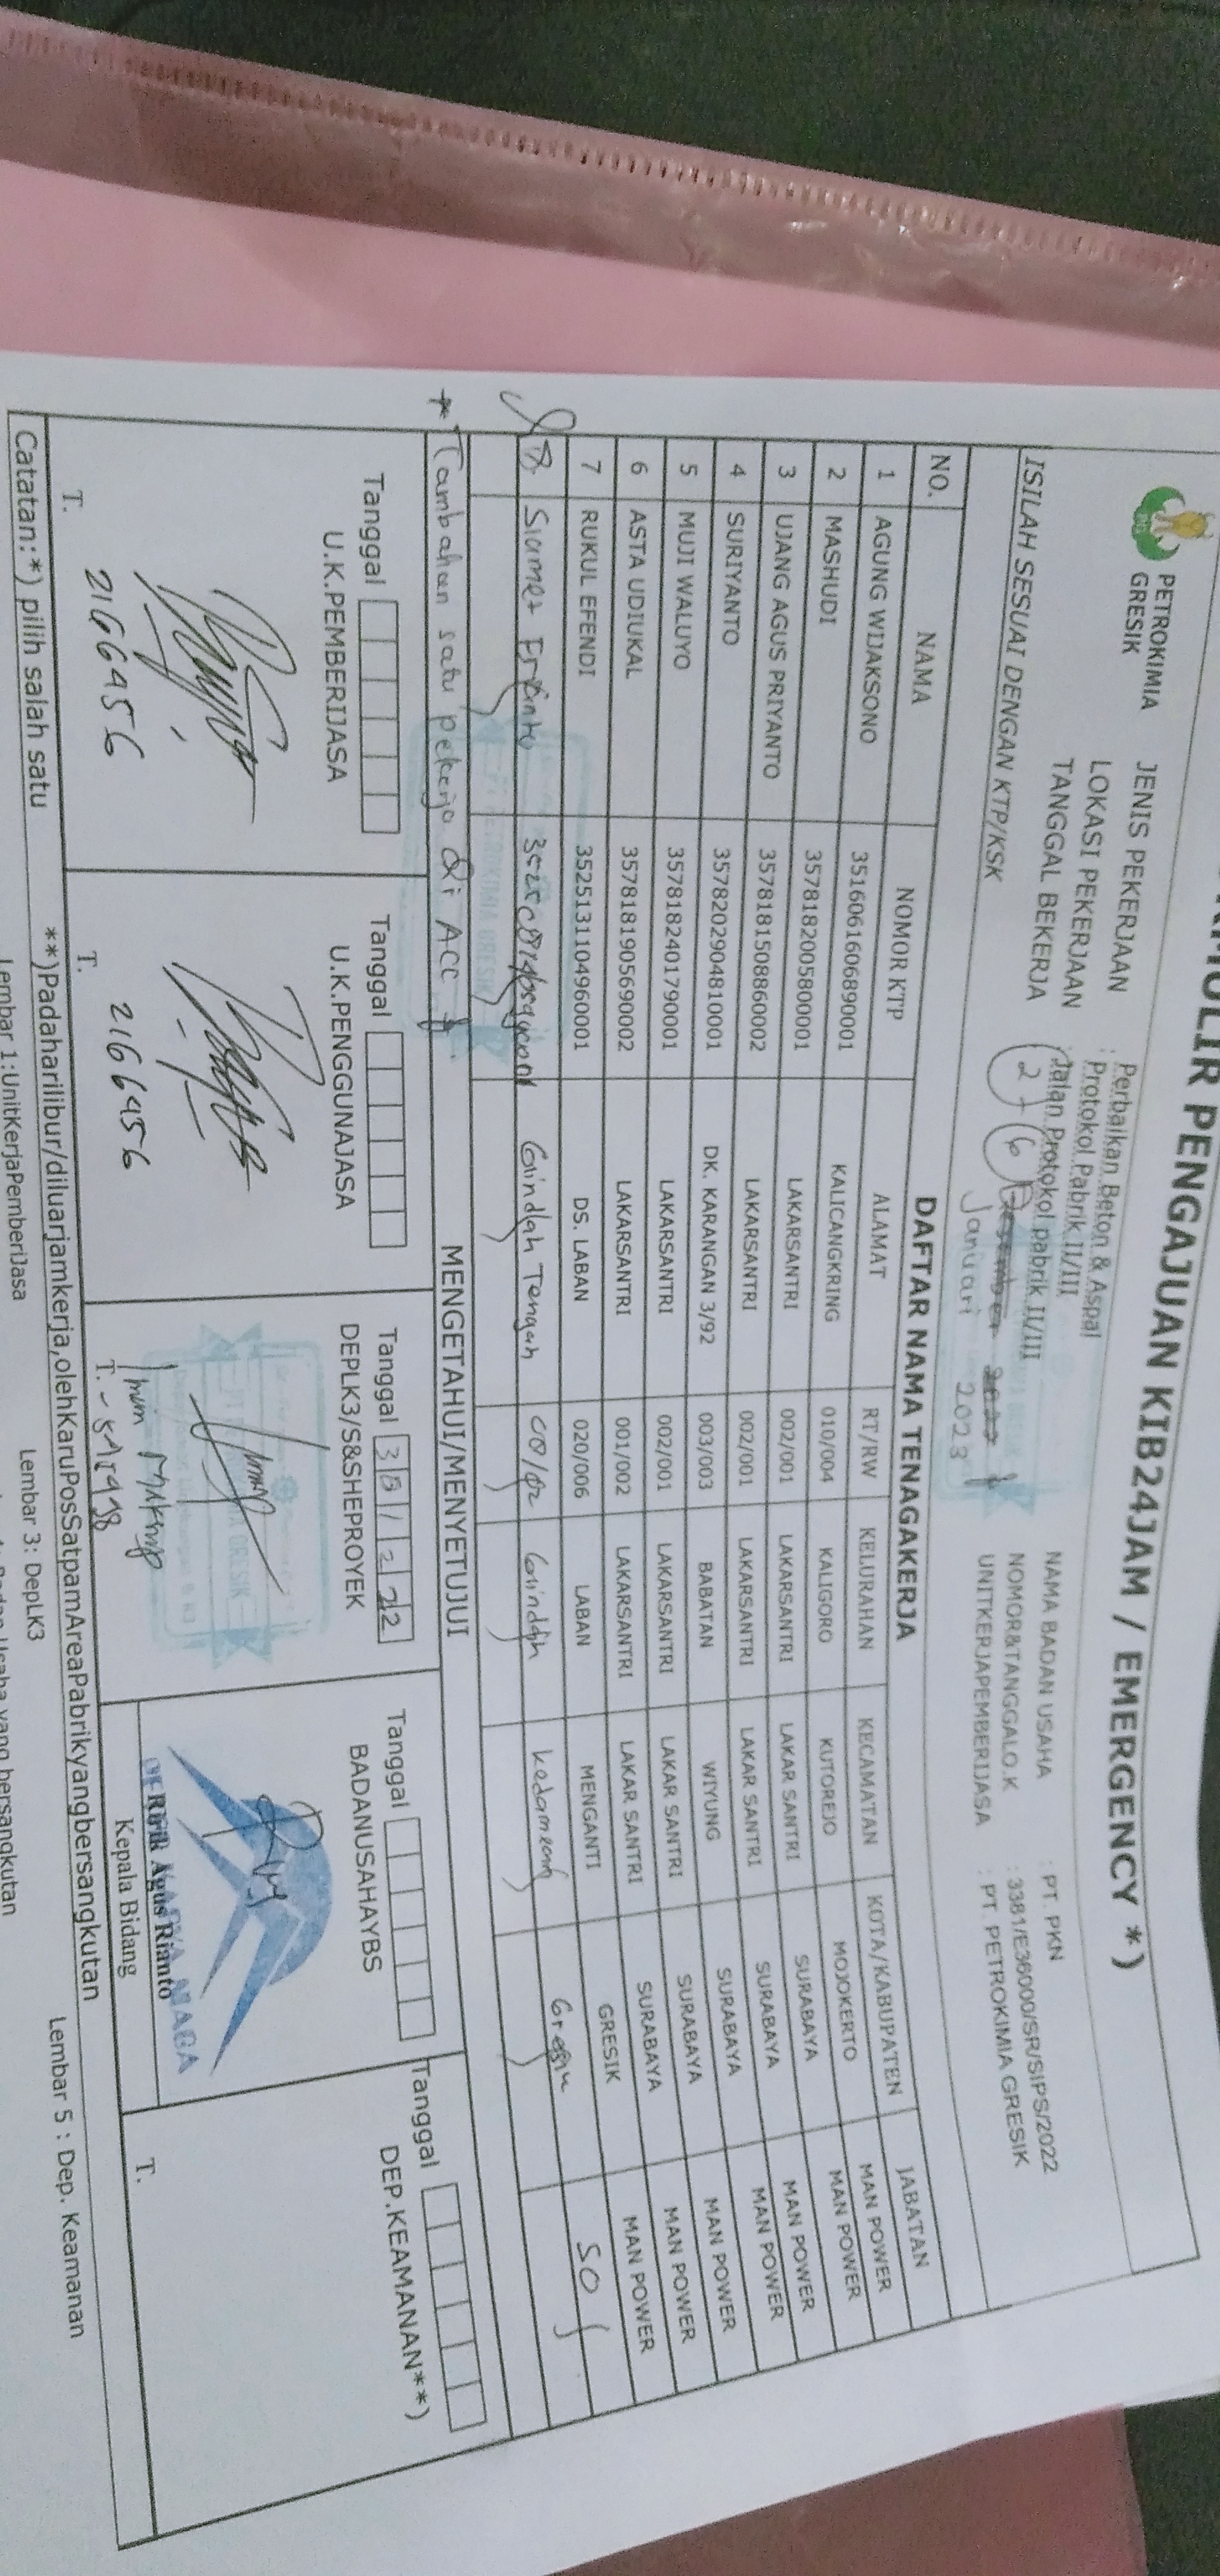 FORMULIR PENGAJUAN KIB24JAM / EMERGENCY *)
PETROKIMIA
GRESIK
JENIS PEKERJAAN : Perbaikan Beton & Aspal
Protokol Pabrik II/III
LOKASI PEKERJAAN : Jalan Protokol pabrik II/III
TANGGAL BEKERJA 2 - 6 Desember 2022
Januari 2023
NAMA BADAN USAHA : PT. PKN
NOMOR&TANGGALO.K : 3381/E36000/SR/SIPS/2022
UNITKERJAPEMBERIJASA : PT. PETROKIMIA GRESIK
ISILAH SESUAI DENGAN KTP/KSK
DAFTAR NAMA TENAGAKERJA
NO. NAMA NOMOR KTP ALAMAT RT/RW KELURAHAN KECAMATAN KOTA/KABUPATEN JABATAN
1 AGUNG WIJAKSONO 3516061606890001 KALICANGKRING 010/004 KALIGORO KUTOREJO MOJOKERTO MAN POWER
2 MASHUDI 3578182005800001 LAKARSANTRI 002/001 LAKARSANTRI LAKAR SANTRI SURABAYA MAN POWER
3 UJANG AGUS PRIYANTO 3578181508860002 LAKARSANTRI 002/001 LAKARSANTRI LAKAR SANTRI SURABAYA MAN POWER
4 SURIYANTO 3578202904810001 DK. KARANGAN 3/92 003/003 BABATAN WIYUNG SURABAYA MAN POWER
5 MUJI WALUYO 3578182401790001 LAKARSANTRI 002/001 LAKARSANTRI LAKAR SANTRI SURABAYA MAN POWER
6 ASTA UDIUKAL 3578181905690002 LAKARSANTRI 001/002 LAKARSANTRI LAKAR SANTRI SURABAYA MAN POWER
7 RUKUL EFENDI 3525131104960001 DS. LABAN 020/006 LABAN MENGANTI GRESIK MAN POWER
8. Slamet Grindah Tengah Grindah kedamean Gresik
+ Tambahan satu pekerja di Acc
MENGETAHUI/MENYETUJUI
Tanggal
U.K.PEMBERIJASA
T. 2166456
Tanggal
U.K.PENGGUNAJASA
T. 2166456
Tanggal
DEPLK3/S&SHEPROYEK
Imam
Tanggal
BADANUSAHAYBS
Ririk Agus Rianto
Kepala Bidang
Tanggal
DEP.KEAMANAN**)
T.
Catatan:*) pilih salah satu
**)Padaharilibur/diluarjamkerja,olehKaruPosSatpamAreaPabrikyangbersangkutan
Lembar 1:UnitKerjaPemberiJasa
Lembar 3: DepLK3
Lembar 5 : Dep. Keamanan